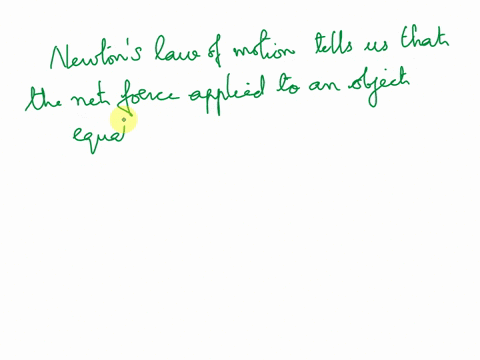 Newton's law of motion tells us that
the net force applied to an object
equa